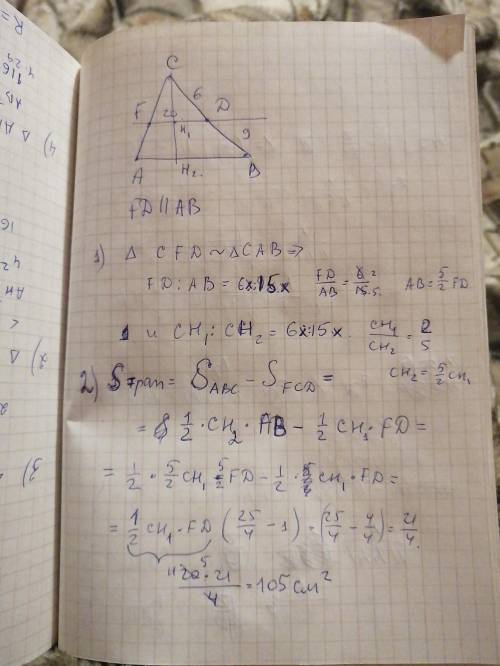 C
6
F
20
D
H₁
9
A
H₂
B
FD || AB
1) Δ CFD ~ ΔCAB ⇒
FD : AB = 6x:15x   FD/AB = 6²/15·5.   AB = 5/2 FD
и CH₁ : CH₂ = 6x:15x.   CH₁/CH₂ = 2/5
CH₂ = 5/2 CH₁
2) Sтрап = S_ABC − S_FCD =
= 1/2 · CH₂ · AB − 1/2 CH₁ · FD =
= 1/2 · 5/2 CH₁ 5/2 FD − 1/2 · CH₁ · FD =
= 1/2 CH₁ · FD (25/4 − 1) = (25/4 − 4/4) = 21/4.
20⁵ · 21/4 = 105 см²
R =
4.29
116
4) Δ
16
42
2) Δ
2
3)